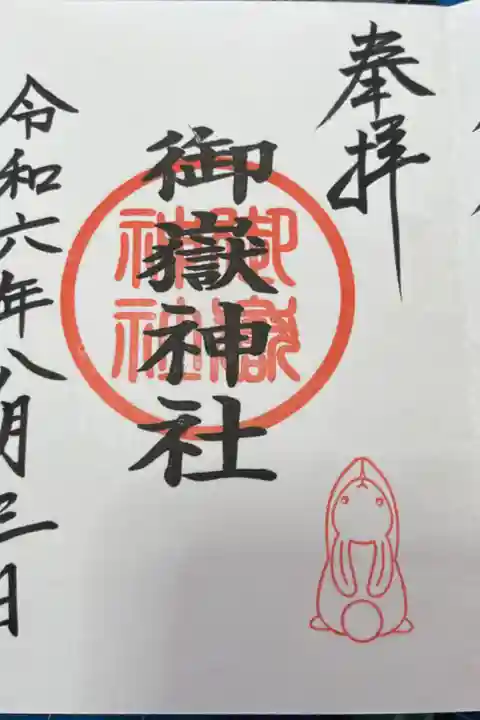 奉拝
御嶽神社
御嶽
神社
令和六年八月三日